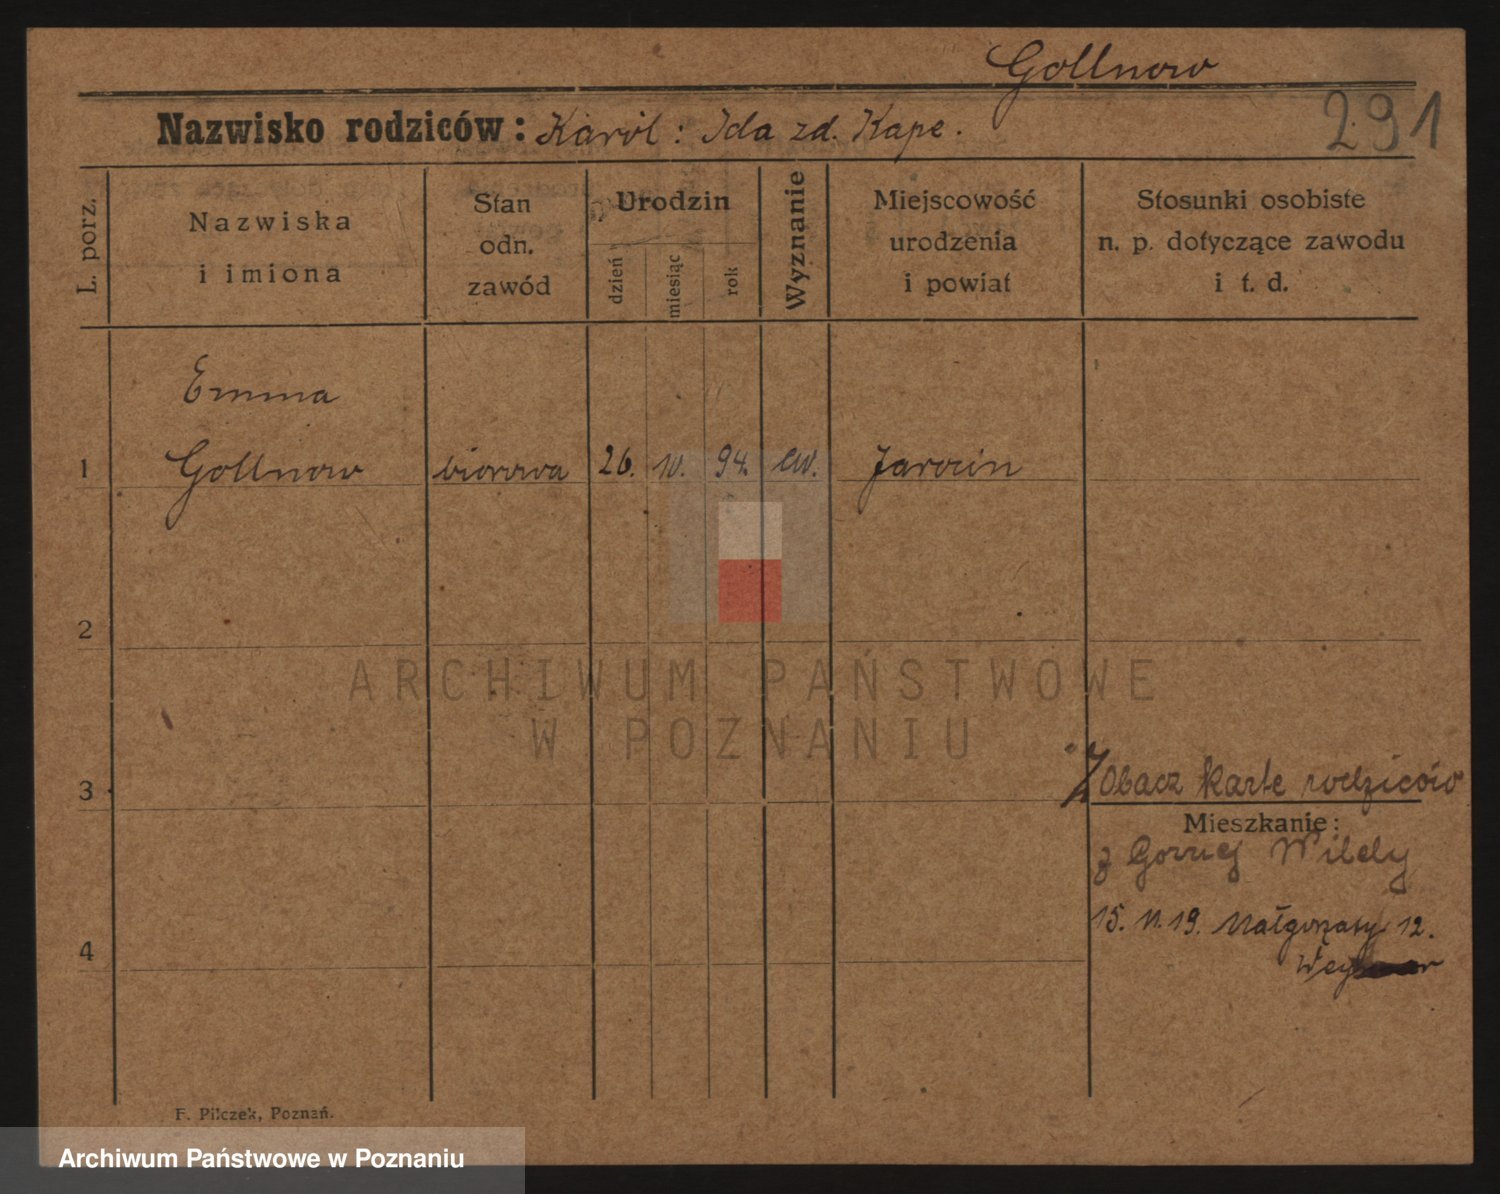 Gollnow
291
Nazwisko rodziców: Karol: Ida zd. Kape.
L. porz.
Nazwiska
i imiona
Stan
odn.
zawód
Urodzin
dzień
miesiąc
rok
Wyznanie
Miejscowość
urodzenia
i powiat
Stosunki osobiste
n. p. dotyczące zawodu
i t. d.
Emma
1 Gollnow biurowa 26. 10. 94. ew. Jarocin
2
3
Zobacz karte rodziców
Mieszkanie:
z Gornej Wildy
15. 11. 19. Małgorzaty 12.
4
F. Pilczek, Poznań.
ARCHIWUM PAŃSTWOWE
W POZNANIU
Archiwum Państwowe w Poznaniu